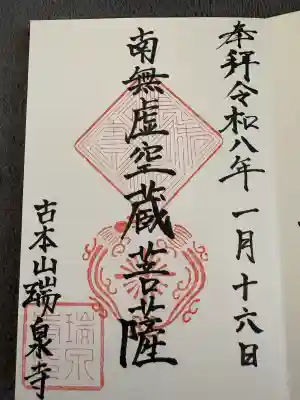 奉拝令和八年一月十六日
南無虚空蔵菩薩
古本山瑞泉寺